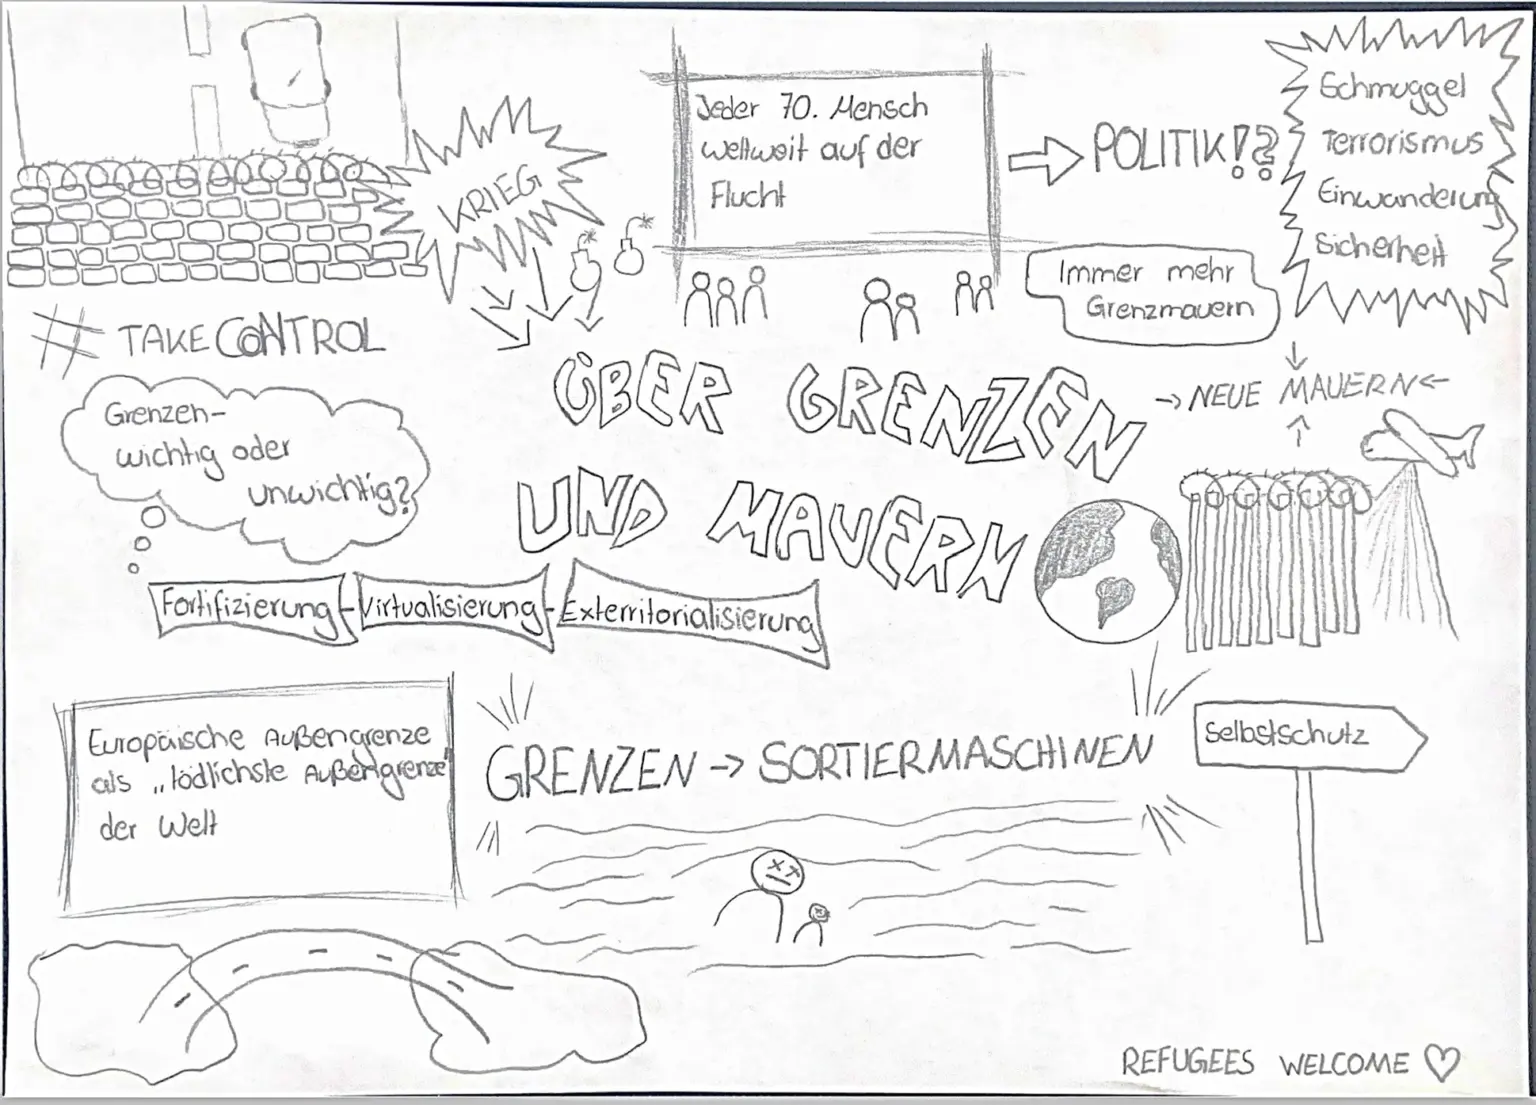 KRIEG
Jeder 70. Mensch
weltweit auf der
Flucht
POLITIK!?
Schmuggel
Terrorismus
Einwanderung
Sicherheit
Immer mehr
Grenzmauern
# TAKE CONTROL
Grenzen-
wichtig oder
unwichtig?
ÜBER GRENZEN
UND MAUERN
→ NEUE MAUERN ←
Fortifizierung - Virtualisierung - Exterritorialisierung
Europäische Außengrenze
als „tödlichste Außengrenze"
der Welt
GRENZEN → SORTIERMASCHINEN
Selbstschutz
REFUGEES WELCOME ♡